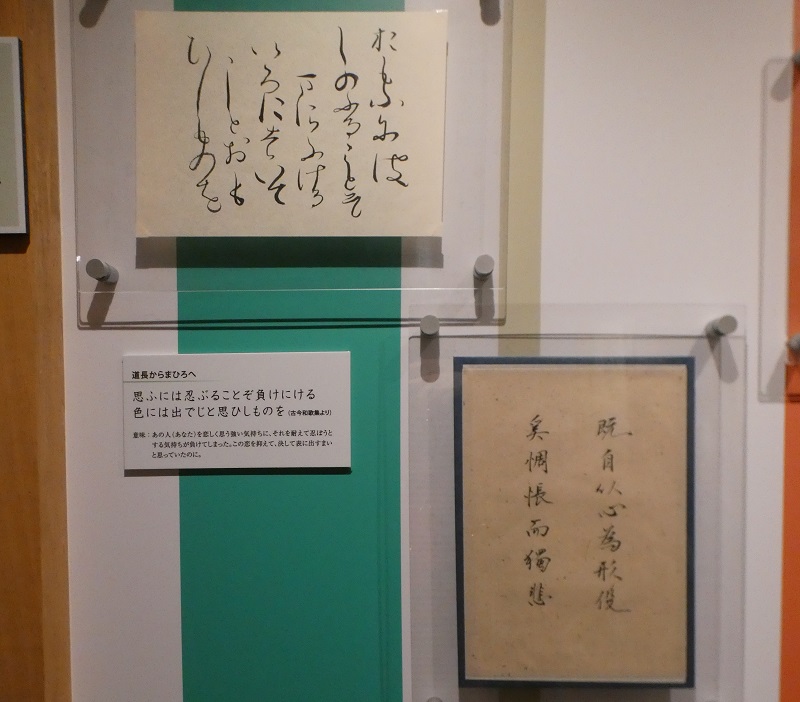 おもふには
しのふることそ
まけにける
いろにはいて
しとおも
ひしものを
道長からまひろへ
思ふには忍ぶることぞ負けにける
色には出でじと思ひしものを(古今和歌集より)
意味:あの人(あなた)を恋しく思う強い気持ちに、それを耐えて忍ぼうと
する気持ちが負けてしまった。この恋を抑えて、決して表に出すまい
と思っていたのに。
既自以心為形役
奚惆悵而獨悲